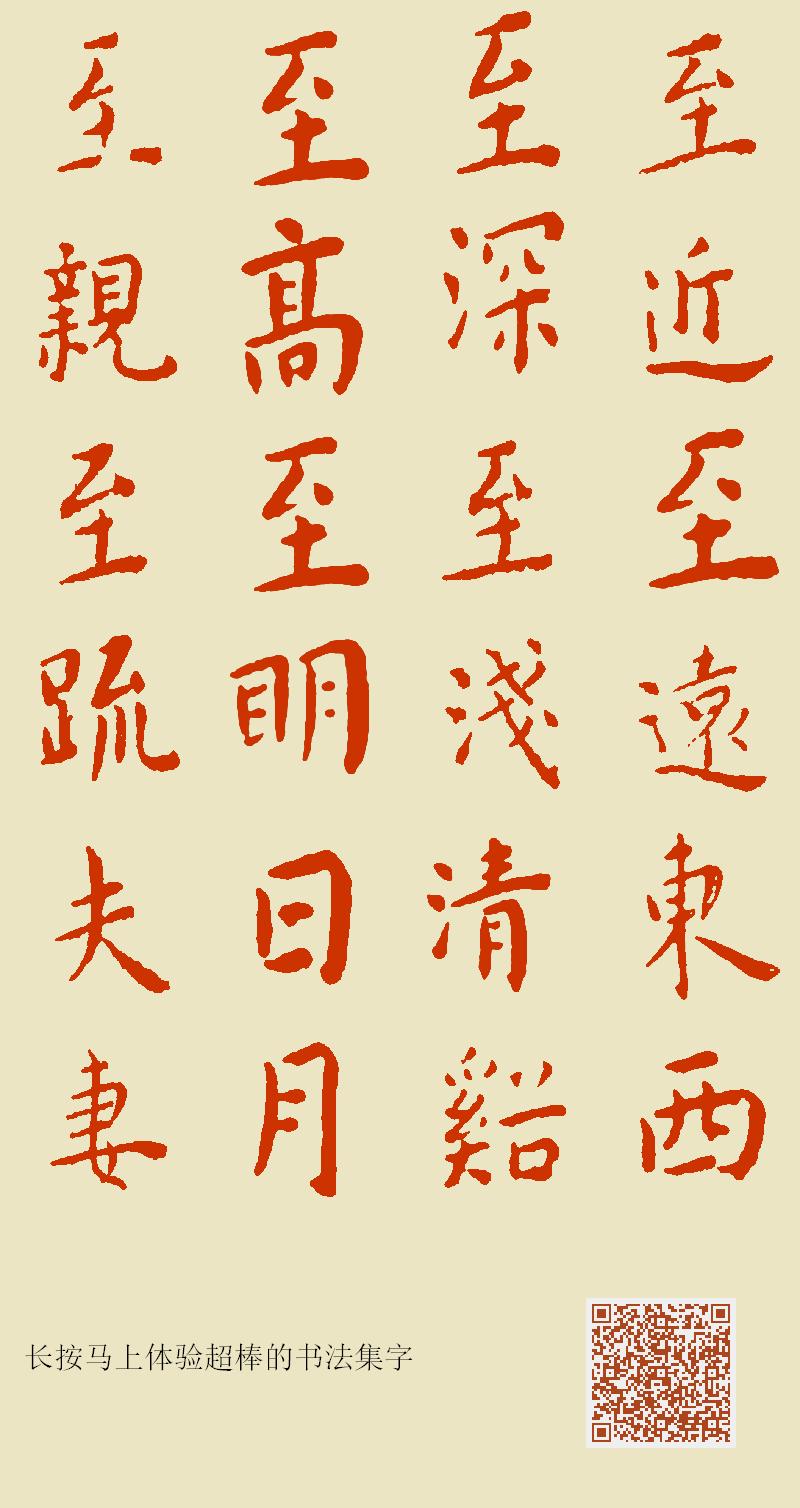 至近至遠東西
至深至淺清谿
至高至明日月
至親至疏夫妻
长按马上体验超棒的书法集字